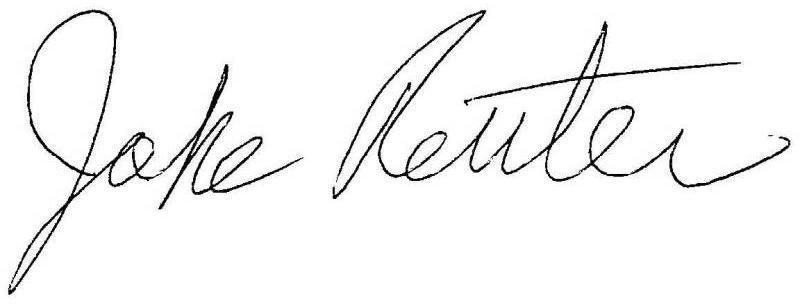 Jake Reuter